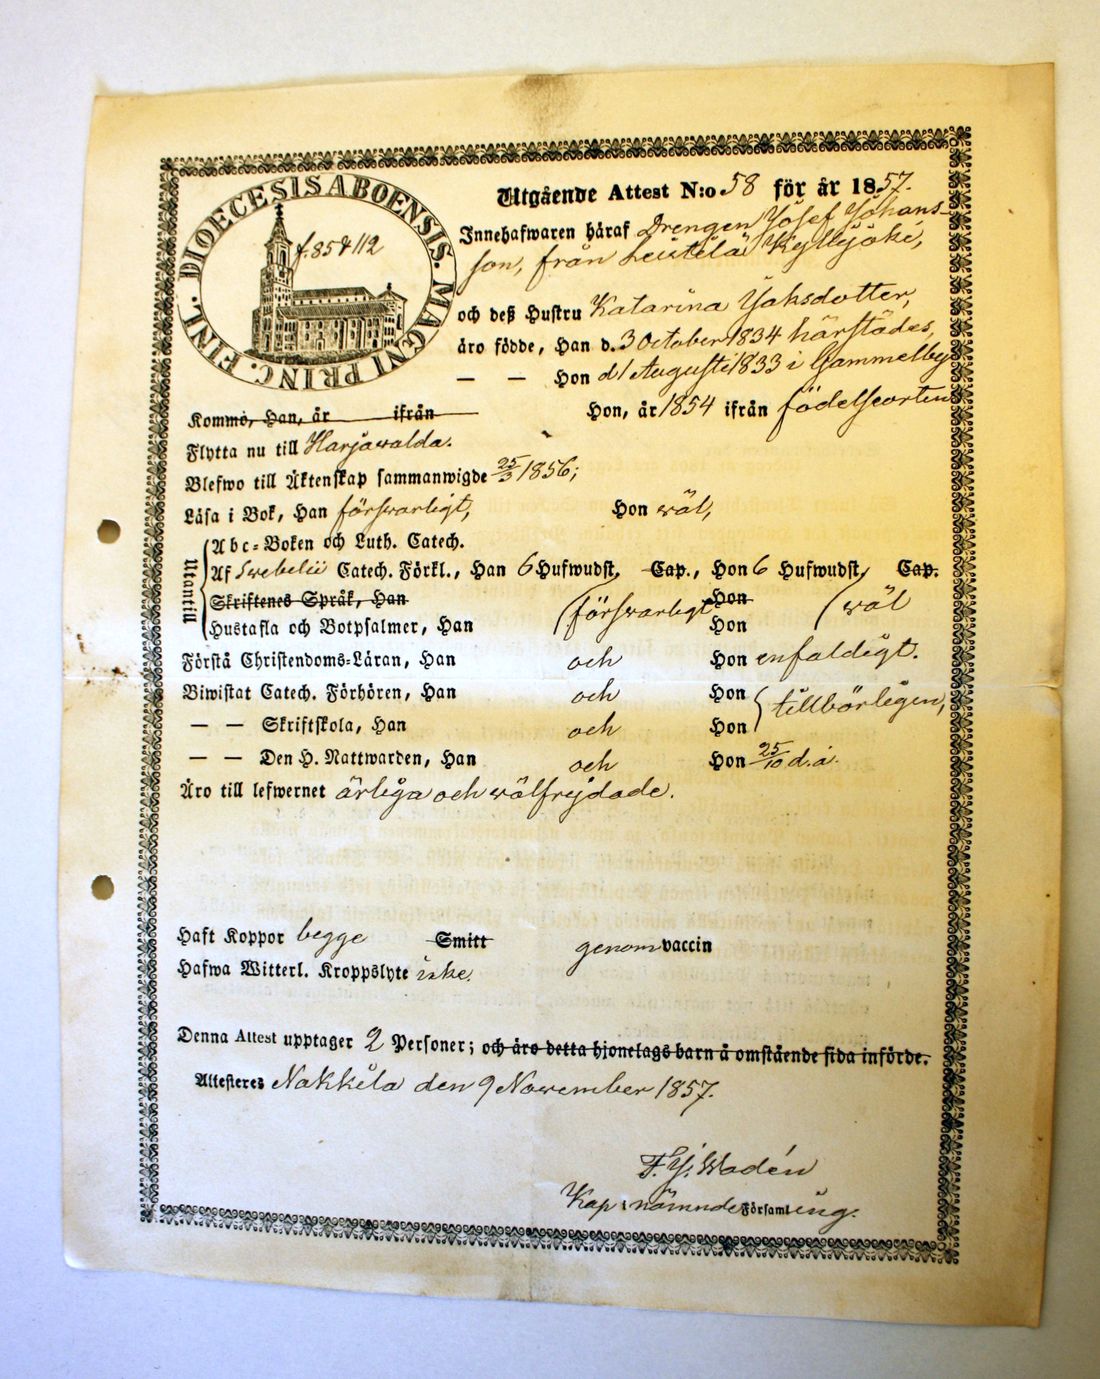 DIOECESIS ABOENSIS. MAGNI PRINC. FINL.
f. 85 & 112
Utgående Attest N:o 58 för år 1857.
Innehafwaren häraf Drengen Josef Johans-
son, från Leistelä Kyllijoke,
och deß Hustru Katarina Jaksdotter,
äro födde, Han d. 3 October 1834 härstädes,
— — Hon d 1 Augusti 1833 i Gammelby
Kommo, Han, år ifrån Hon, år 1854 ifrån födelseorten
Flytta nu till Harjawalda.
Blefwo till Äktenskap sammanwigde 25/3 1856;
Läsa i Bok, Han förswarligt, Hon wäl,
Utantill
Abc-Boken och Luth. Catech.
Af Swebelii Catech. Förkl., Han 6 Hufwudst. Cap., Hon 6 Hufwudst. Cap.
Skriftenes Språk, Han förswarligt Hon wäl
Hustafla och Botpsalmer, Han Hon
Förstå Christendoms-Läran, Han och Hon enfaldigt.
Biwistat Catech. Förhören, Han och Hon tillbörligen,
— — Skriftskola, Han och Hon
— — Den H. Nattwarden, Han och Hon 25/10 d. å.
Äro till lefwernet ärliga och wälfrejdade.
Haft Koppor begge Smitt genom vaccin
Hafwa Witterl. Kroppslyte icke.
Denna Attest upptager 2 Personer; och äro detta hjonelags barn å omstående sida införde.
Attesteres Nakkila den 9 November 1857.
F. J. Wadén
Kap: i nämnde Församling.